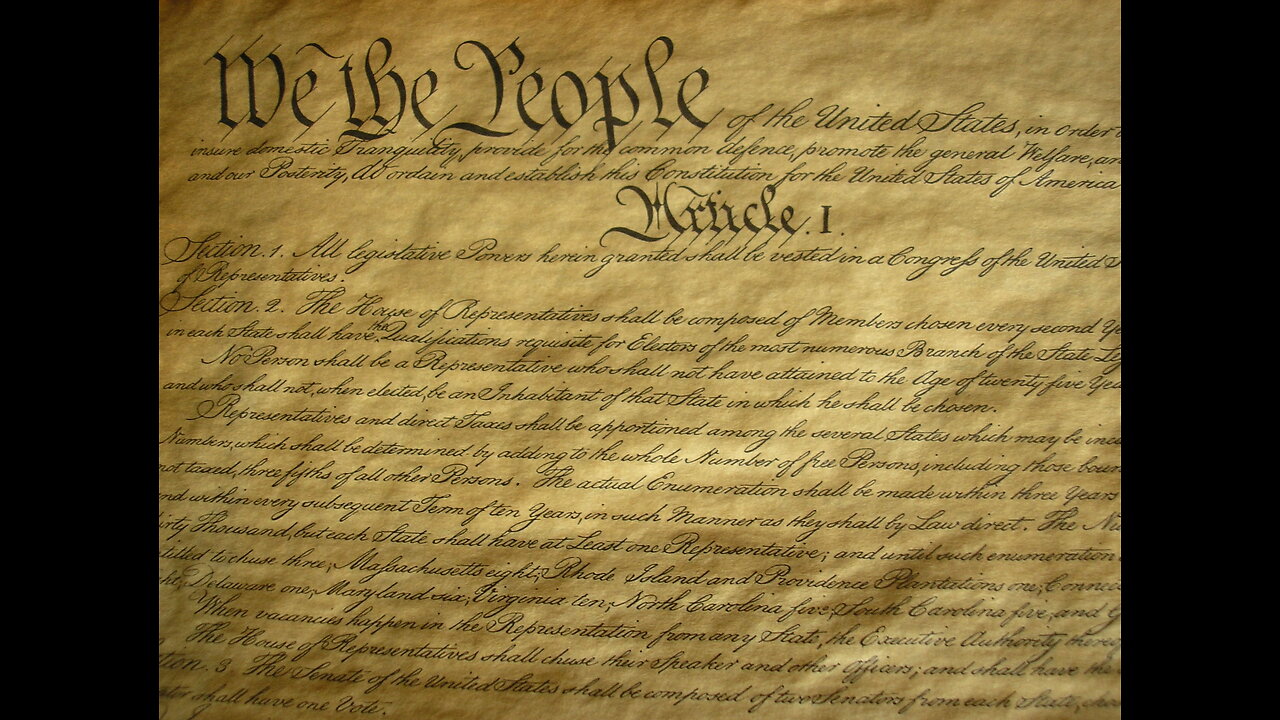 We the People of the United States, in order
insure domestic Tranquility, provide for the common defence, promote the general Welfare, an
and our Posterity, do ordain and establish this Constitution for the United States of America
Article. I.
Section. 1. All legislative Powers herein granted shall be vested in a Congress of the United S
of Representatives.
Section. 2. The House of Representatives shall be composed of Members chosen every second Ye
in each State shall have the Qualifications requisite for Electors of the most numerous Branch of the State Le
No Person shall be a Representative who shall not have attained to the Age of twenty five Yea
and who shall not, when elected, be an Inhabitant of that State in which he shall be chosen.
Representatives and direct Taxes shall be apportioned among the several States which may be inc
Numbers, which shall be determined by adding to the whole Number of free Persons, including those boun
not taxed, three fifths of all other Persons. The actual Enumeration shall be made within three Years
and within every subsequent Term of ten Years, in such Manner as they shall by Law direct. The Nu
irty Thousand, but each State shall have at Least one Representative; and until such enumeration
titled to chuse three, Massachusetts eight, Rhode Island and Providence Plantations one, Connec
ht, Delaware one, Maryland six, Virginia ten, North Carolina five, South Carolina five, and G
When vacancies happen in the Representation from any State, the Executive Authority thereo
The House of Representatives shall chuse their Speaker and other Officers; and shall have the
tion. 3. The Senate of the United States shall be composed of two Senators from each State, chos
ator shall have one Vote.